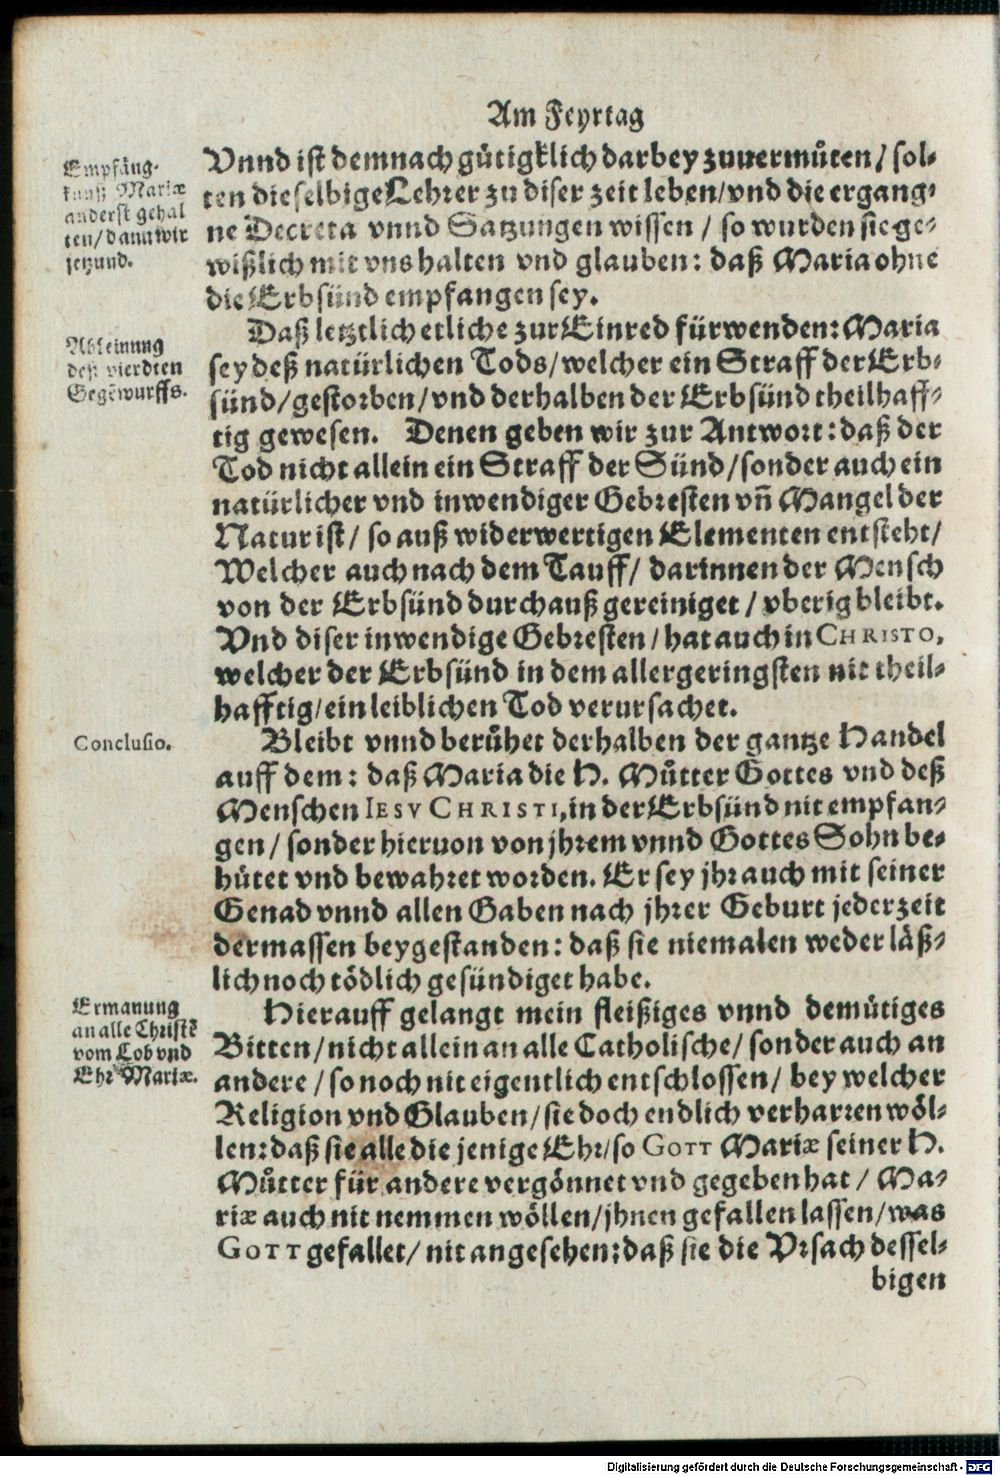 Am Feyrtag
Empfäng-
knuß Mariæ
anderst gehal
ten/dann wir
jetzund.
Vnnd ist demnach gütigklich darbey zuuermůten/sol-
ten dieselbige Lehrer zu diser zeit leben/vnd die ergang-
ne Decreta vnnd Satzungen wissen/so wurden sie ge-
wißlich mit vns halten vnd glauben: daß Maria ohne
die Erbsünd empfangen sey.
Ableinung
deß vierdten
Gegẽwurffs.
Daß letztlich etliche zur Einred fürwenden: Maria
sey deß natürlichen Tods/welcher ein Straff der Erb-
sünd/gestorben/vnd derhalben der Erbsünd theilhaff-
tig gewesen. Denen geben wir zur Antwort: daß der
Tod nicht allein ein Straff der Sünd/sonder auch ein
natürlicher vnd inwendiger Gebresten vñ Mangel der
Natur ist/so auß widerwertigen Elementen entsteht/
Welcher auch nach dem Tauff/darinnen der Mensch
von der Erbsünd durchauß gereiniget/vberig bleibt.
Vnd diser inwendige Gebresten/hat auch in CHRISTO,
welcher der Erbsünd in dem allergeringsten nit theil-
hafftig/ein leiblichen Tod verursachet.
Conclusio.
Bleibt vnnd berůhet derhalben der gantze Handel
auff dem: daß Maria die H. Můtter Gottes vnd deß
Menschen IESV CHRISTI, in der Erbsünd nit empfan-
gen/sonder hieruon von jhrem vnnd Gottes Sohn be-
hütet vnd bewahret worden. Er sey jhr auch mit seiner
Genad vnnd allen Gaben nach jhrer Geburt jederzeit
dermassen beygestanden: daß sie niemalen weder läß-
lich noch tödlich gesündiget habe.
Ermanung
an alle Christẽ
vom Lob vnd
Ehr Mariæ.
Hierauff gelangt mein fleißiges vnnd demütiges
Bitten/nicht allein an alle Catholische/sonder auch an
andere/so noch nit eigentlich entschlossen/bey welcher
Religion vnd Glauben/sie doch endlich verharren wöl-
len: daß sie alle die jenige Ehr/so GOTT Mariæ seiner H.
Můtter für andere vergönnet vnd gegeben hat/Ma-
riæ auch nit nemmen wöllen/jhnen gefallen lassen/was
GOTT gefallet/nit angesehen: daß sie die Vrsach dessel-
bigen
Digitalisierung gefördert durch die Deutsche Forschungsgemeinschaft - DFG